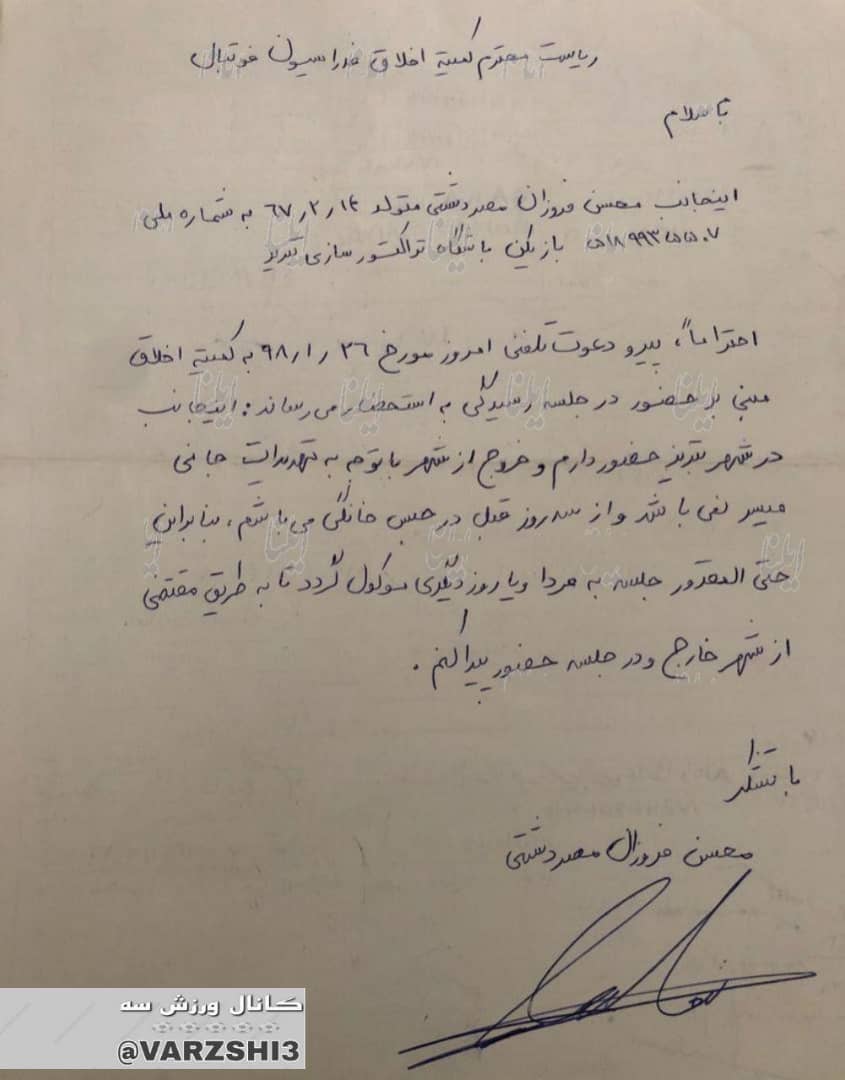 ریاست محترم کمیته اخلاق فدراسیون فوتبال
با سلام
اینجانب محسن فروزان مصردشتی متولد ۶۷٫۲٫۱۴ به شماره ملی
بازیکن باشگاه تراکتورسازی تبریز
احتراماً، پیرو دعوت تلفنی امروز مورخ ۹۸٫۱٫۲۶ به کمیته اخلاق
مبنی بر حضور در جلسه رسیدگی به استحضار می رساند: اینجانب
در شهر تبریز حضور دارم و خروج از شهر با توجه به تهدیدات جانی
میسر نمی باشد و از سه روز قبل در حبس خانگی می باشم، بنابراین
حتی المقدور جلسه به فردا ویا روز دیگری موکول گردد تا به طریق مقتضی
از شهر خارج و در جلسه حضور پیدا کنم.
با تشکر
محسن فروزان مصردشتی
کانال ورزش سه
@VARZSHI3
ایلنا